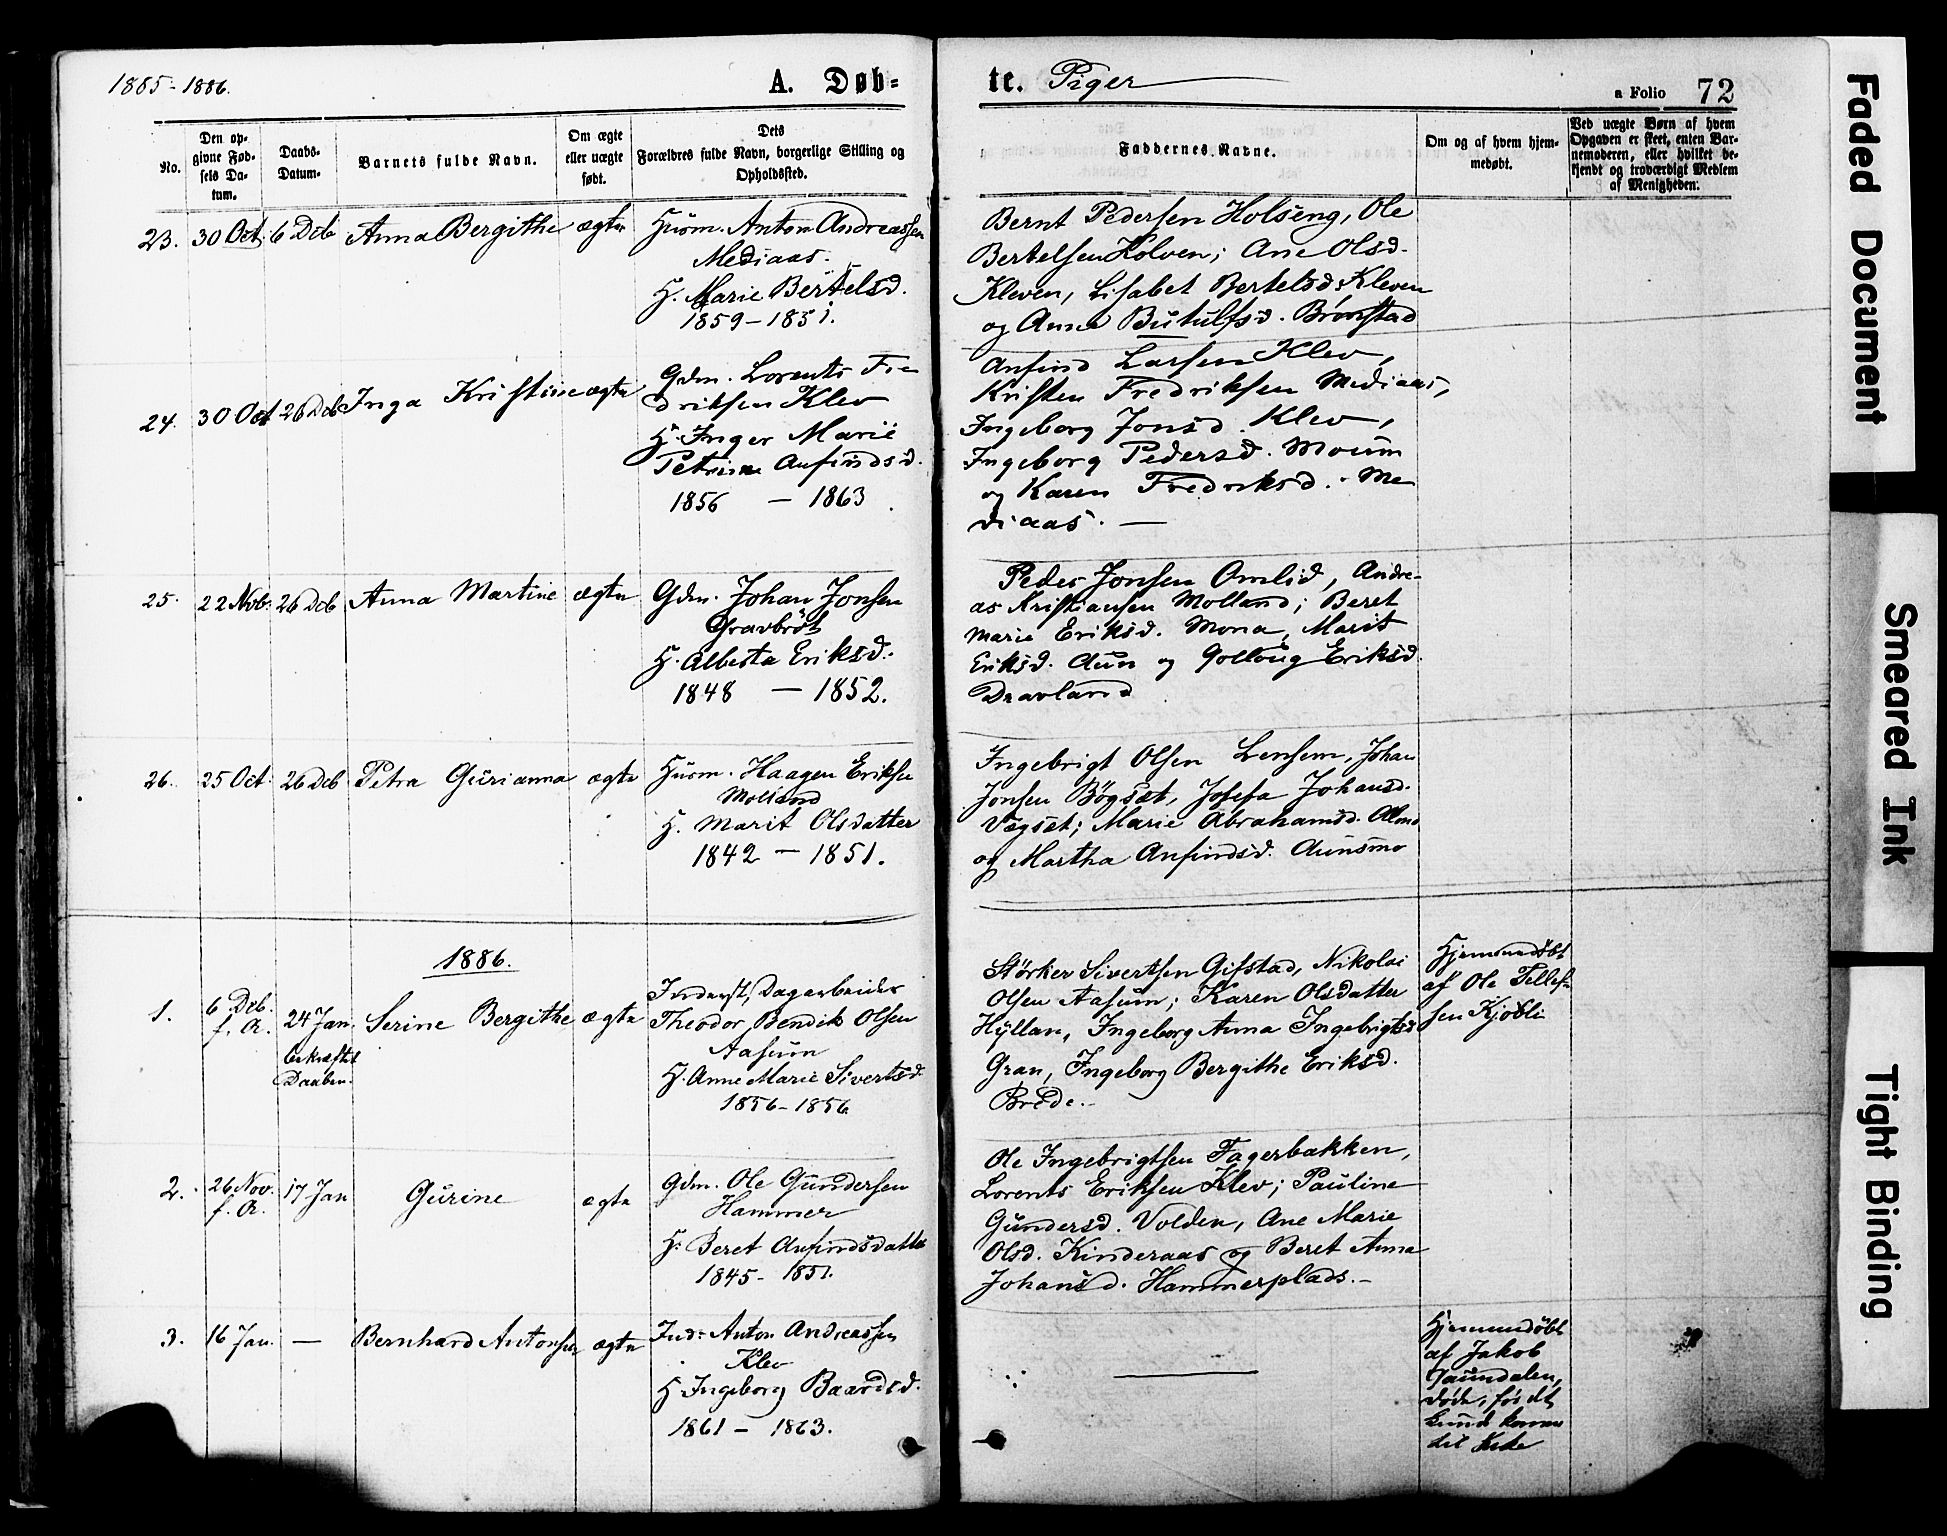 1885-1886.
A. Døb=
te. Piger
a Folio 72
No.
Den op-
givne Fød-
sels Da-
tum.
Daabs-
Datum.
Barnets fulde Navn.
Om ægte
eller uægte
født.
Dets
Forældres fulde Navn, borgerlige Stilling og
Opholdssted.
Faddernes Navne.
Om og af hvem hjem-
medøbt.
Ved uægte Børn af hvem
Opgaven er skeet, enten Bar-
nemoderen, eller hvilket be-
kjendt og troværdigt Medlem
af Menigheden.
23. 30 Oct. 6 Dcb Anna Bergithe ægte
Huusm. Anton Andreassen
Mediaas.
H. Marie Bertelsd.
1859-1851.
Bernt Pedersen Holseng, Ole
Bertelsen Holven; Ane Olsd.
Kleven, Lisabet Bertelsd. Kleven
og Anna Butulfsd. Brønstad
24. 30 Oct 26 Dcb Inga Kristine ægte
Gdm. Lorents Fre
driksen Klev
H. Inger Marie
Petrine Anfindsd.
1856 - 1863
Anfind Larsen Klev,
Kristen Fredriksen Mediaas,
Ingeborg Jonsd. Klev,
Ingeborg Pedersd. Moum
og Karen Fredriksd. Me
diaas. —
25. 22 Nob. 26 Dcb Anna Martine ægte
Gdm. Johan Jonsen
Gravbröt
H. Alberta Eriksd.
1848 — 1852.
Peder Jonsen Omlid, Andre-
as Kristiansen Molland; Beret
Marie Eriksd. Mona, Marit
Eriksd. Aun og Golloug Eriksd.
Dravland
26. 25 Oct 26 Dcb Petra Gurianna ægte
Huusm. Haagen Eriksen
Molland
H. Marit Olsdatter
1842 - 1851.
Ingebrigt Olsen Lensem, Johan
Jonsen Bøgset, Josefa Johansd.
Vægset; Marie Abrahamsd.
og Martha Anfindsd. Aunsmo
1886.
1. 6 Dcb. f. A. 24 Jan. Serine Bergithe ægte
bekræftet
Daaben.
Inderst, Dagarbeider
Theodor Bendik Olsen
Aasum
H. Anne Marie Sivertsd.
1856-1856
Störker Sivertsen Gifstad, Nikolai
Olsen Aasum; Karen Olsdatter
Hyllan, Ingeborg Anna Ingebrigtsd
Gran, Ingeborg Bergithe Eriksd.
Brede.-
Hjemmedöbt
af Ole Tellef-
sen Kjobli
2. 26 Nov. f. A. 17 Jan Gurine ægte
Gdm. Ole Gundersen
Hammer
H. Beret Anfindsdatter
1845- 1851.
Ole Ingebrigtsen Fagerbakken,
Lorents Eriksen Klev; Pauline
Gundersd. Volden, Ane Marie
Olsd. Kinderaas og Beret Anna
Johansd. Hammerplads.-
3. 16 Jan. — Bernhard Antonsen ægte
Ind. Anton Andreassen
Klev
H. Ingeborg Baardsd.
1861 - 1863.
Hjemmedöbt
af Jakob
Gaundalen,
döde, för det
kunde komme
til Kirke
Faded Document
Smeared Ink
Tight Binding